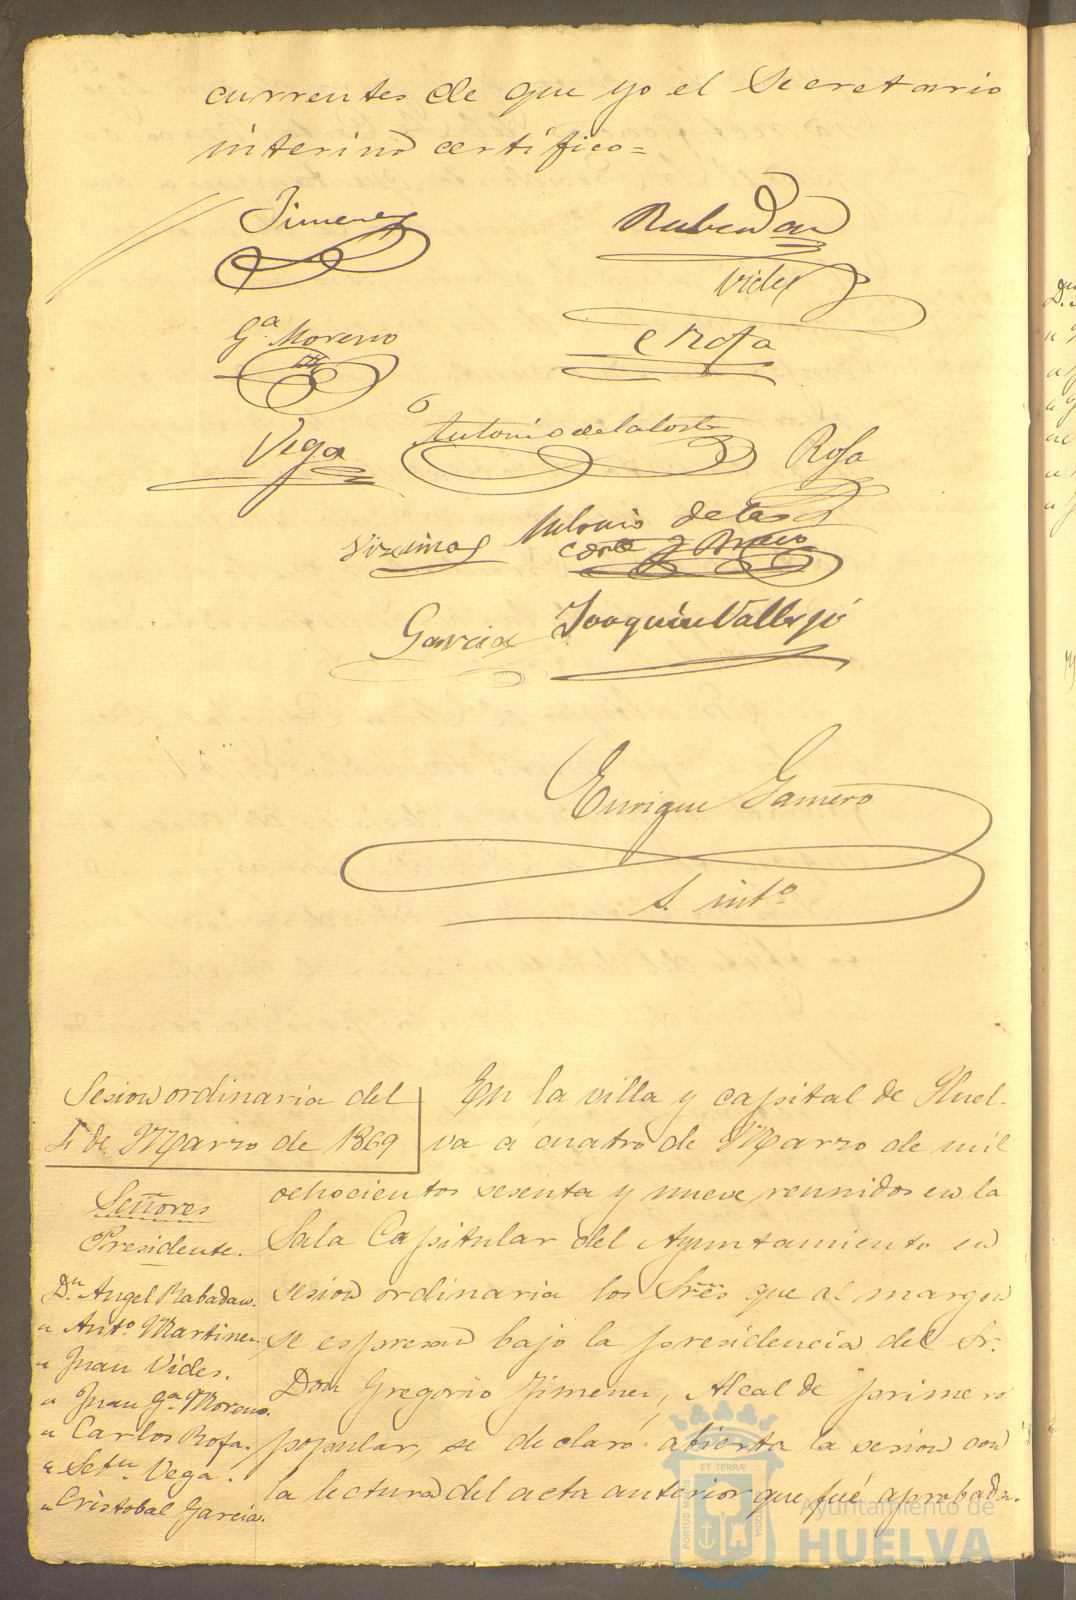 currentes de que yo el Secretario
interino certífico=
Jimenez
Rabadan
Vides
Gª Moreno
C Rofa
Vega
Antonio de la Corte
Rofa
Antonio de la
Corte y Bravo
Garcia
Joaquin Vallejo
Enrique Gamero
S. intº
Sesion ordinaria del
4 de Marzo de 1869
Señores
Presidente.
Dn Angel Rabadan.
" Antº Martinez
" Juan Vides.
" Juan Gª Moreno.
" Carlos Rofa.
" Setn Vega.
" Cristobal Garcia.
En la villa y capital de Huel-
va á cuatro de Marzo de mil
ochocientos sesenta y nueve reunidos en la
Sala Capitular del Ayuntamiento en
sesion ordinaria los Sres que al margen
se espresan bajo la presidencia del Sr.
Don Gregorio Jimenez, Alcalde primero
popular, se declaró abierta la sesion con
la lectura del acta anterior que fué aprobada.
PORTUS MARIS ET TERRÆ CUSTODIA
Ayuntamiento de
HUELVA